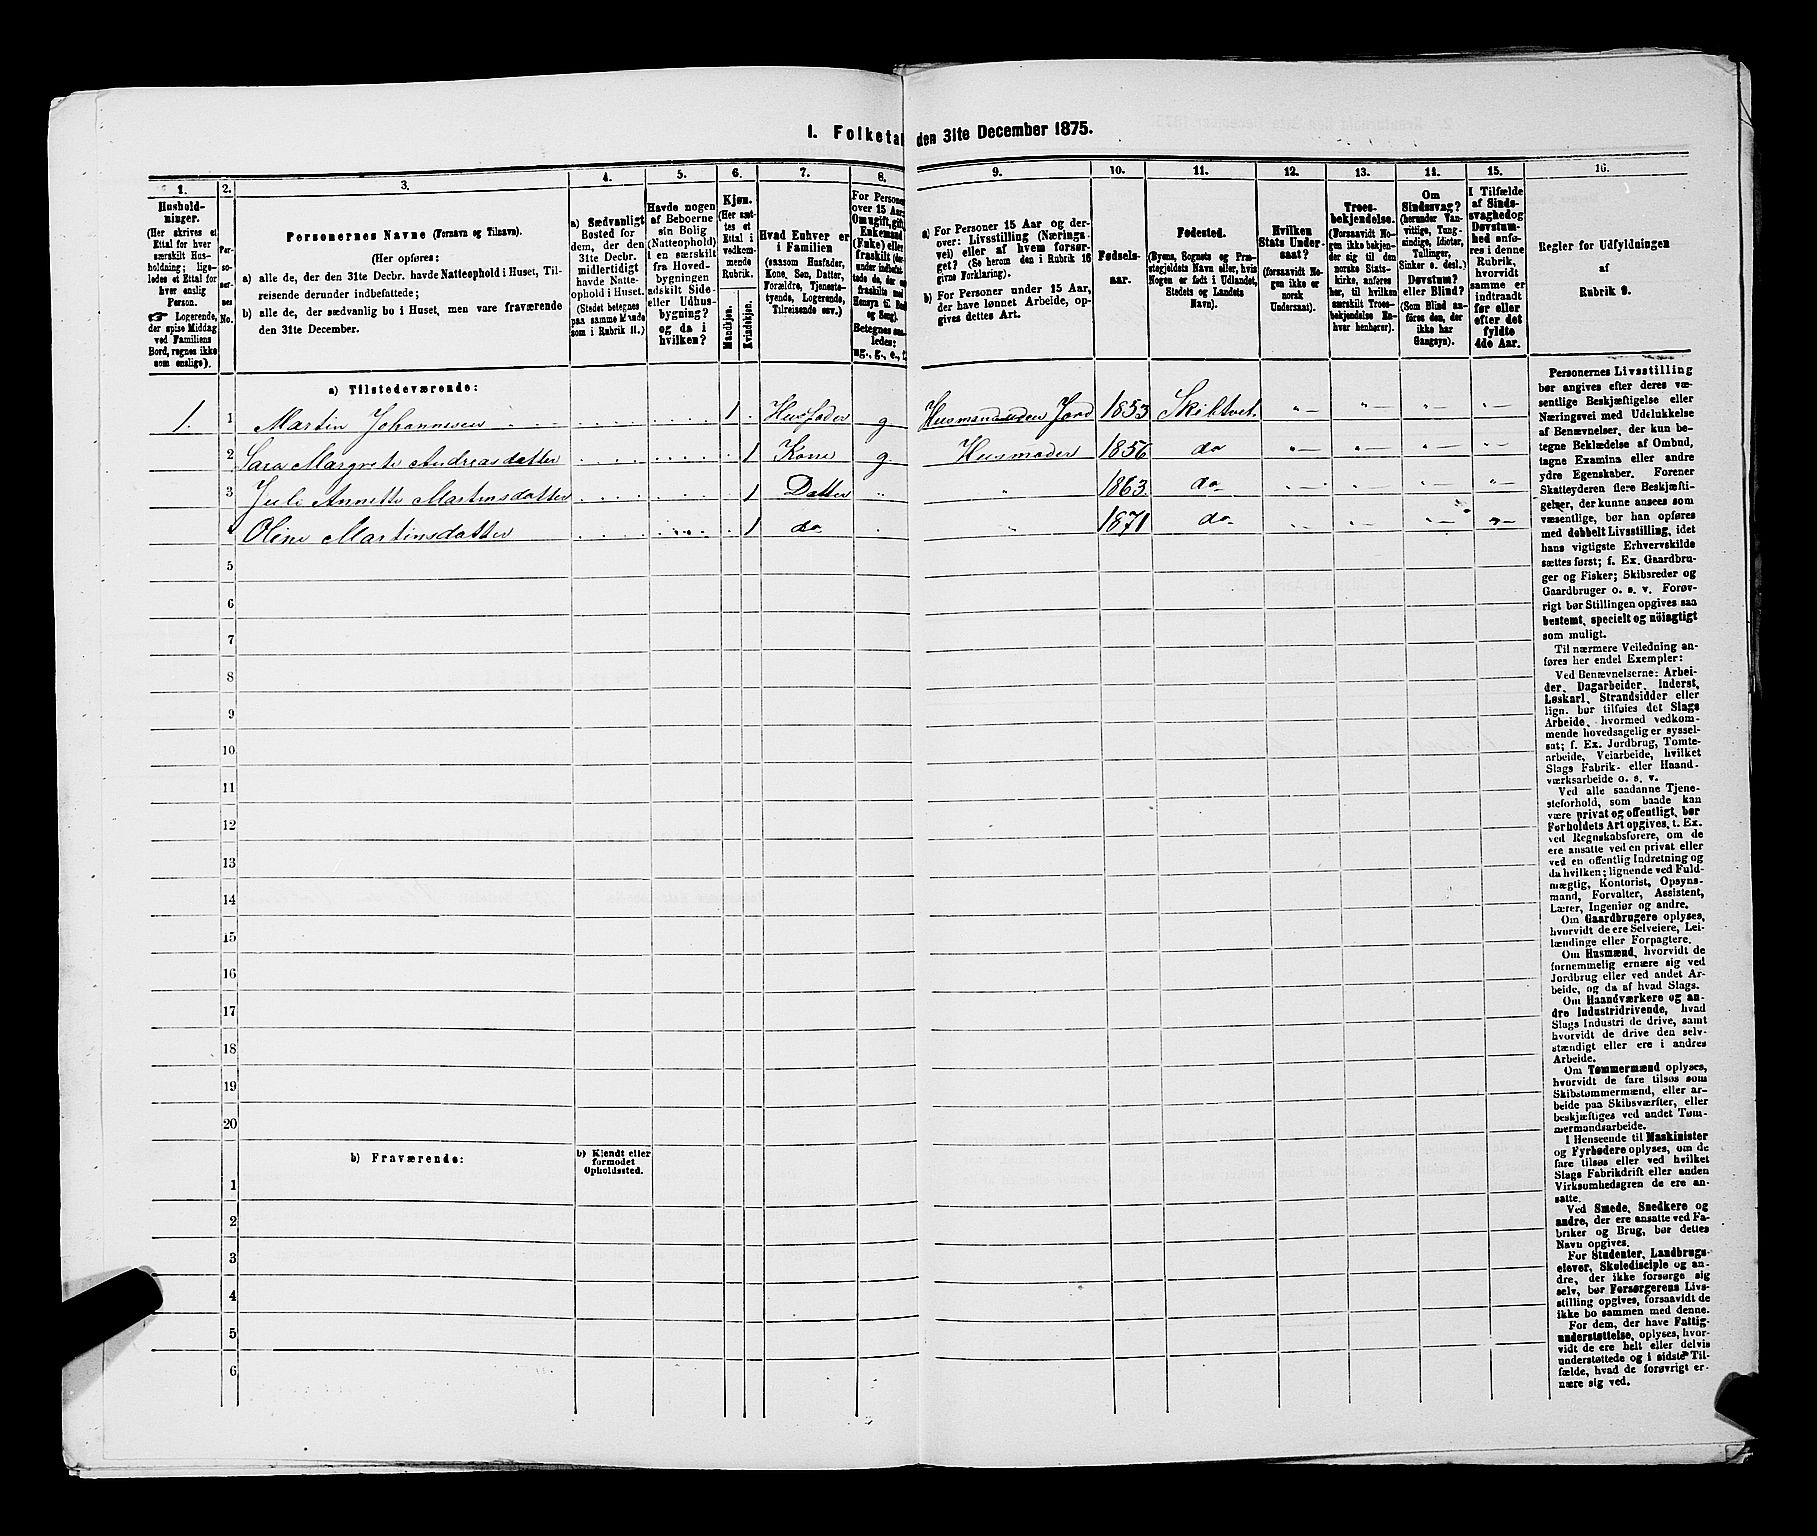 1. Folketal den 31te December 1875.
1. 2. 3. 4. 5. 6. 7. 8. 9. 10. 11. 12. 13. 14. 15. 16.
Hushold-
ninger.
(Her skrives et
Ettal for hver
særskilt Hus-
holdning; lige-
ledes et Ettal for
hver enslig
Person.
☛ Logerende,
der spise Middag
ved Familiens
Bord, regnes ikke
som enslige).
Per-
so-
ner-
nes
No.
Personernes Navne (Fornavn og Tilnavn).
(Her opføres:
a) alle de, der den 31te Decbr. havde Natteophold i Huset, Til-
reisende derunder indbefattede;
b) alle de, der sædvanlig bo i Huset, men vare fraværende
den 31te December.
a) Sædvanligt
Bosted for
dem, der den
31te Decbr.
midlertidigt
havde Natte-
ophold i Huset.
(Stedet betegnes
paa samme Maade
som i Rubrik 11.)
Havde nogen
af Beboerne
sin Bolig
(Natteophold)
i en særskilt
fra Hoved-
bygningen
adskilt Side-
eller Udhus-
bygning?
og da i
hvilken?
Kjøn.
(Her sæt-
tes et
Ettal i
vedkom-
mende
Rubrik.
Mandkjøn.
Kvindekjøn.
Hvad Enhver er
i Familien
(saasom Husfader,
Kone, Søn, Datter,
Forældre, Tjeneste-
tyende, Logerende,
Tilreisende osv.)
For Personer
over 15 Aar:
Om ugift, gift,
Enkemand
(Enke) eller
fraskilt
Betegnes saa-
ledes:
ug., g., e.,
a) For Personer 15 Aar og der-
over: Livsstilling (Nærings-
vei) eller af hvem forsør-
get? (Se herom den i Rubrik 16
givne Forklaring).
b) For Personer under 15 Aar,
der have lønnet Arbeide, op-
gives dettes Art.
Fødsels-
aar.
Fødested.
(Byens, Sognets og Præ-
stegjeldets Navn eller, hvis
Nogen er født i Udlandet,
Stedets og Landets
Navn).
Hvilken
Stats Under-
saat?
(forsaavidt No-
gen ikke er
norsk
Undersaat).
Troes-
bekjendelse.
(Forsaavidt No-
gen ikke bekjen-
der sig til den
norske Stats-
kirke, anføres
her, til hvilken
særskilt Troes-
bekjendelse En-
hver henhører).
Om
Sindssvag?
(herunder Van-
vittige, Tung-
sindige, Idioter,
Tullinger,
Sinker o. desl.)
Døvstum?
eller Blind?
(Som Blind an-
føres den, der
ikke har
Gangsyn).
I Tilfælde
af Sinds-
svaghed og
Døvstum-
hed anfø-
res i denne
Rubrik,
hvorvidt
samme er
indtraadt
før eller
efter det
fyldte
4de Aar.
Regler for Udfyldningen
af
Rubrik 9.
a) Tilstedeværende:
1. 1 Martin Johannesen 1 Husfader g Husmand uden Jord 1853 Skibtvet. „ — „ — „ — „ —
2 Sara Margrete Andreasdatter 1 Kone g. Husmoder 1856 do „ — „ — „ — „ —
3 Juli Annette Martinsdatter 1 Datter „ „ 1863 do „ — „ — „ — „ —
4 Oline Martinsdatter 1 do „ „ 1871 do „ — „ — „ — „ —
5
6
7
8
9
10
11
12
13
14
15
16
17
18
19
20
b) Fraværende:
b) Kjendt eller
formodet
Opholdssted.
1
2
3
4
5
6
Personernes Livsstilling
bør angives efter deres væ-
sentlige Beskjæftigelse eller
Næringsvei med Udelukkelse
af Benævnelser, der kun be-
tegne Beklædelse af Ombud,
tagne Examina eller andre
ydre Egenskaber. Forener
Skatteyderen flere Beskjæfti-
gelser, der kunne ansees som
væsentlige, bør han opføres
med dobbelt Livsstilling, idet
hans vigtigste Erhvervskilde
sættes først; f. Ex. Gaardbru-
ger og Fisker; Skibsreder og
Gaardbruger o. s. v. Forøv-
rigt bør Stillingen opgives saa
bestemt, specielt og nöiagtigt
som muligt.
Til nærmere Veiledning an-
føres her endel Exempler:
Ved Benævnelserne: Arbei-
der, Dagarbeider, Inderst,
Løskarl, Strandsidder eller
lign. bør tilføies det Slags
Arbeide, hvormed vedkom-
mende hovedsagelig er syssel-
sat; f. Ex. Jordbrug, Tomte-
arbeide, Veiarbeide, hvilket
Slags Fabrik- eller Haand-
værksarbeide o. s. v.
Ved alle saadanne Tjene-
steforhold, som baade kan
være privat og offentligt, bør
Forholdets Art opgives, t. Ex.
ved Regnskabsførere, om de
ere ansatte ved en privat eller
ved en offentlig Indretning og
da hvilken; lignende ved Fuld-
mægtig, Kontorist, Opsyns-
mand, Forvalter, Assistent,
Lærer, Ingeniør og andre.
Om Gaardbrugere oplyses,
hvorvidt de ere Selveiere, Lei-
lændinge eller Forpagtere.
Om Husmænd, hvorvidt de
fornemmelig ernære sig ved
Jordbrug eller ved andet Ar-
beide, og da af hvad Slags.
Om Haandværkere og an-
dre Industridrivende, hvad
Slags Industri de drive, samt
hvorvidt de drive den selv-
stændigt eller ere i andres
Arbeide.
Om Tømmermænd oplyses,
hvorvidt de fare tilsøs som
Skibstømmermænd, eller ar-
beide paa Skibsværfter, eller
beskjæftiges ved andet Tøm-
mermandsarbeide.
I Henseende til Maskinister
og Fyrbødere oplyses, om de
fare tilsøs eller ved hvilket
Slags Fabrikdrift eller anden
Virksomhedsgren de ere an-
satte.
Ved Smede, Snedkere og
andre, der ere ansatte ved Fa-
briker og Brug, bør dettes
Navn opgives.
For Studenter, Landbrugs-
elever, Skoledisciple og an-
dre, der ikke forsørge sig
selv, bør Forsørgerens Livs-
stilling opgives, forsaavidt de
ikke bo sammen med denne.
For dem, der have Fattig-
understøttelse, oplyses, hvor-
vidt de ere helt eller delvis
understøttede og i sidste Til-
fælde, hvad de forøvrigt er-
nære sig ved.